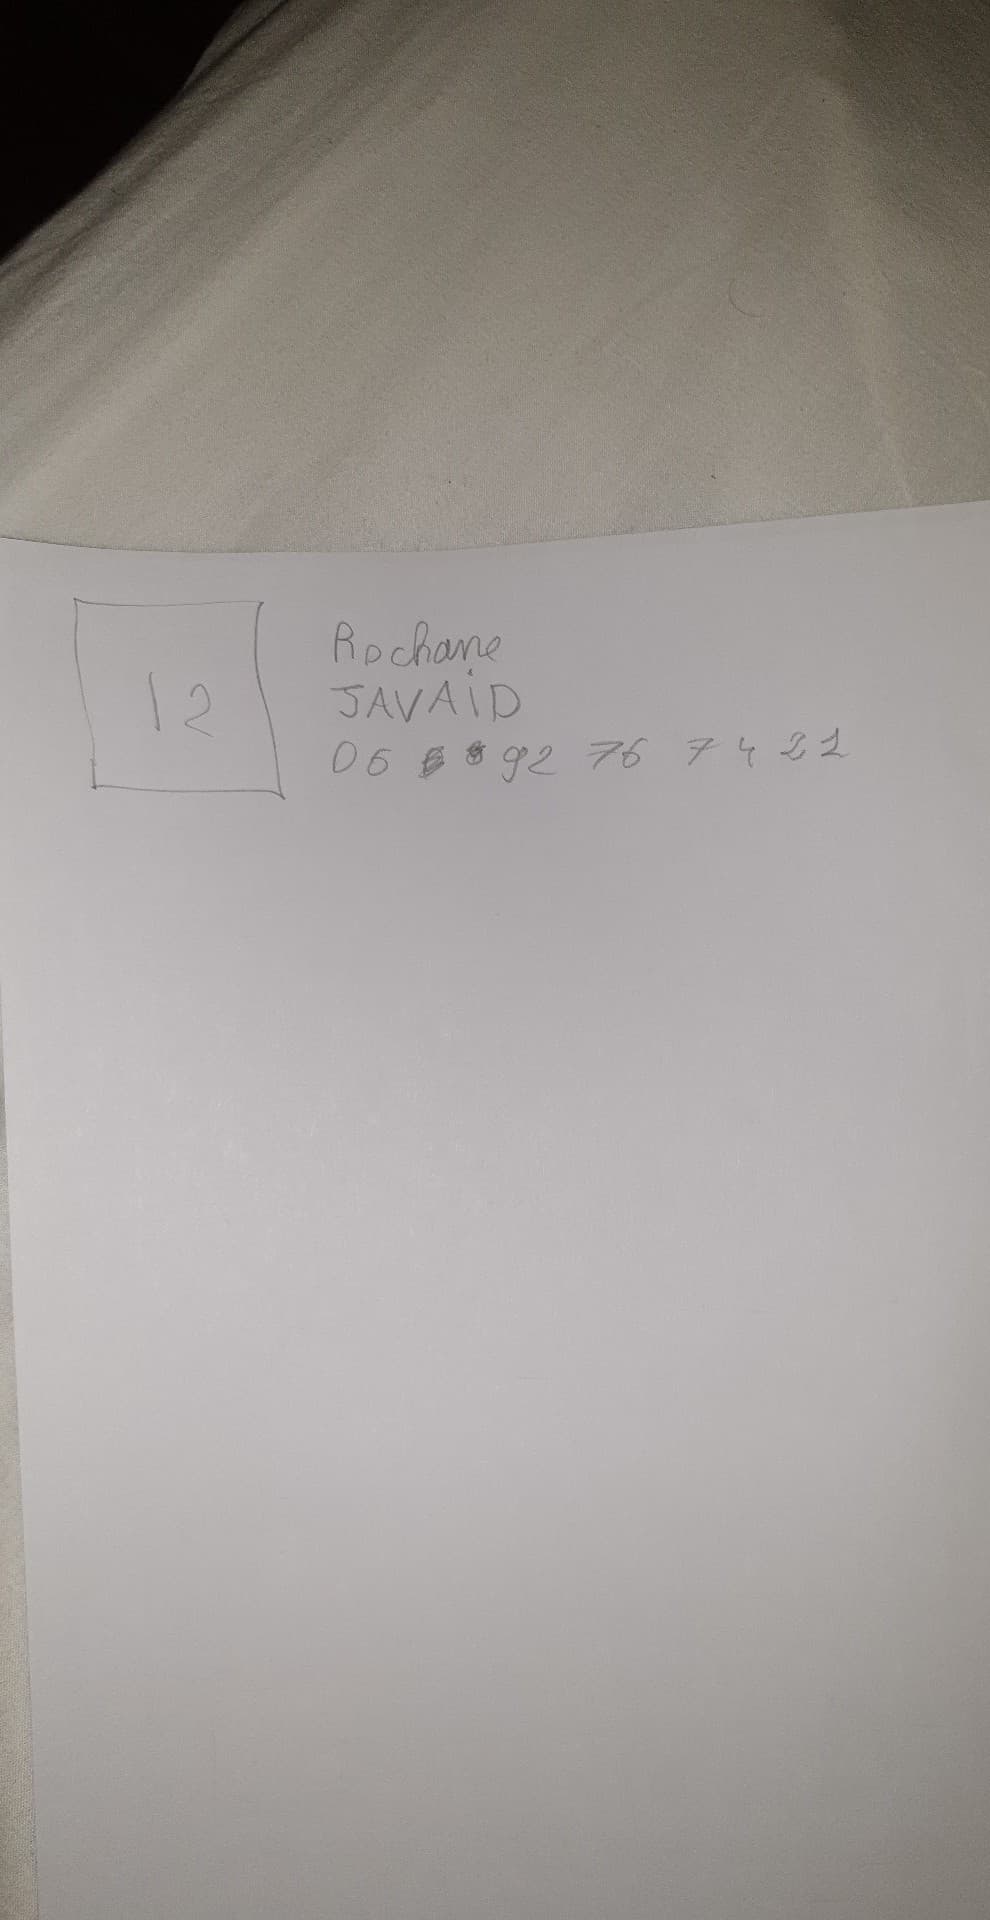 12
Rochane
JAVAiD
06 92 76 74 21